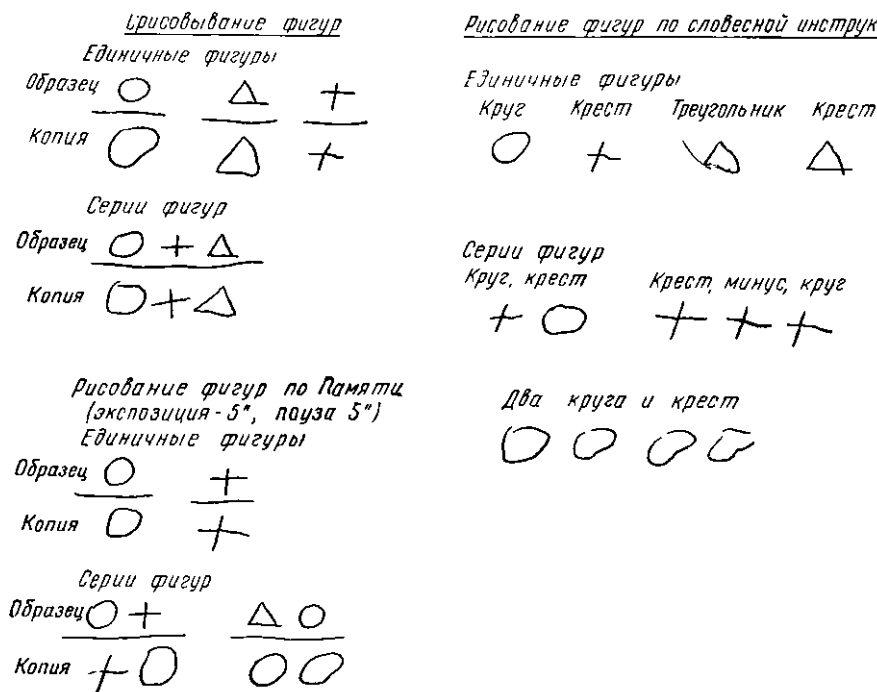 Срисовывание фигур
Единичные фигуры
Образец
Копия
Серии фигур
Образец
Копия
Рисование фигур по Памяти
(экспозиция - 5", пауза 5")
Единичные фигуры
Образец
Копия
Серии фигур
Образец
Копия
Рисование фигур по словесной инструк
Единичные фигуры
Круг Крест Треугольник Крест
Серии фигур
Круг, крест Крест, минус, круг
Два круга и крест